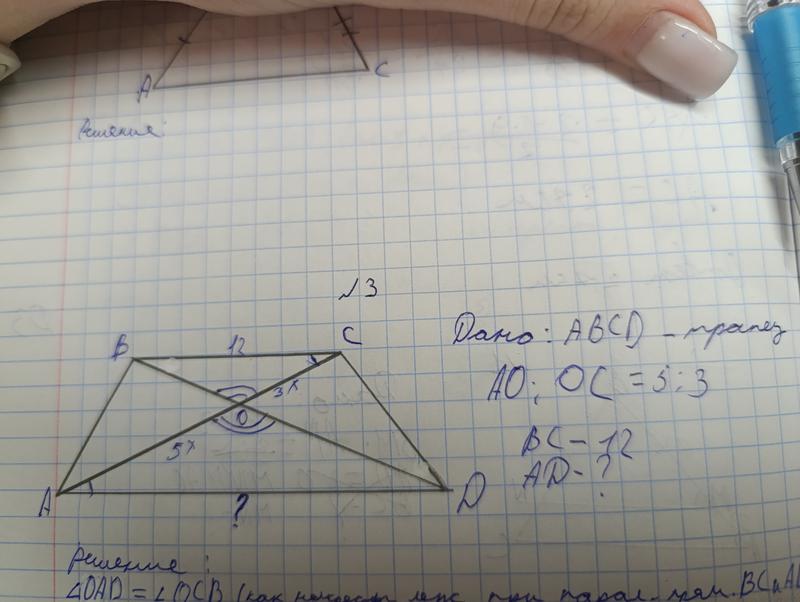 A C
Решение:
№3
B 12 C
Дано: ABCD - трапец
3x
AO; OC = 5:3
O
5x
BC - 12
AD - ?
A ? D
Решение:
∠OAD = ∠OCB (как накрест леж. при парал. прям. BC и AD